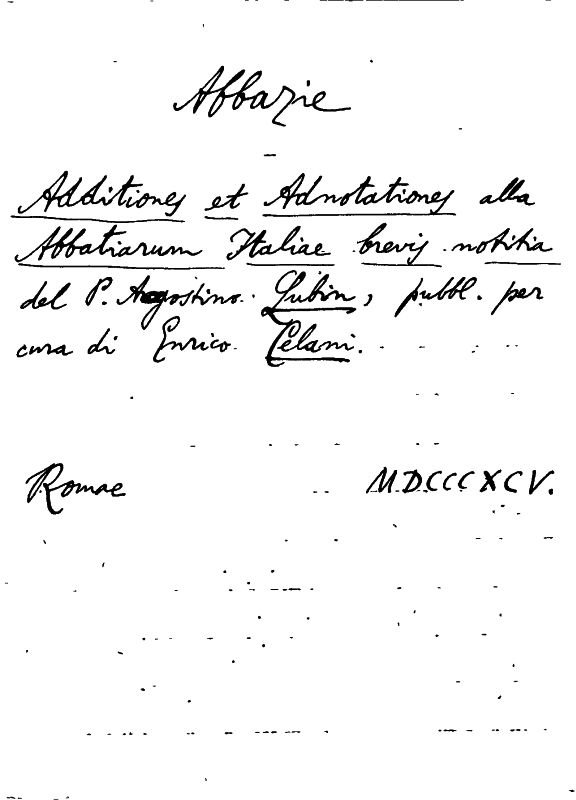 Abbazie
Additiones et Adnotationes alla
Abbatiarum Italiae brevis notitia
del P. Agostino Lubin, pubbl. per
cura di Enrico Celani.
Romae MDCCCXCV.